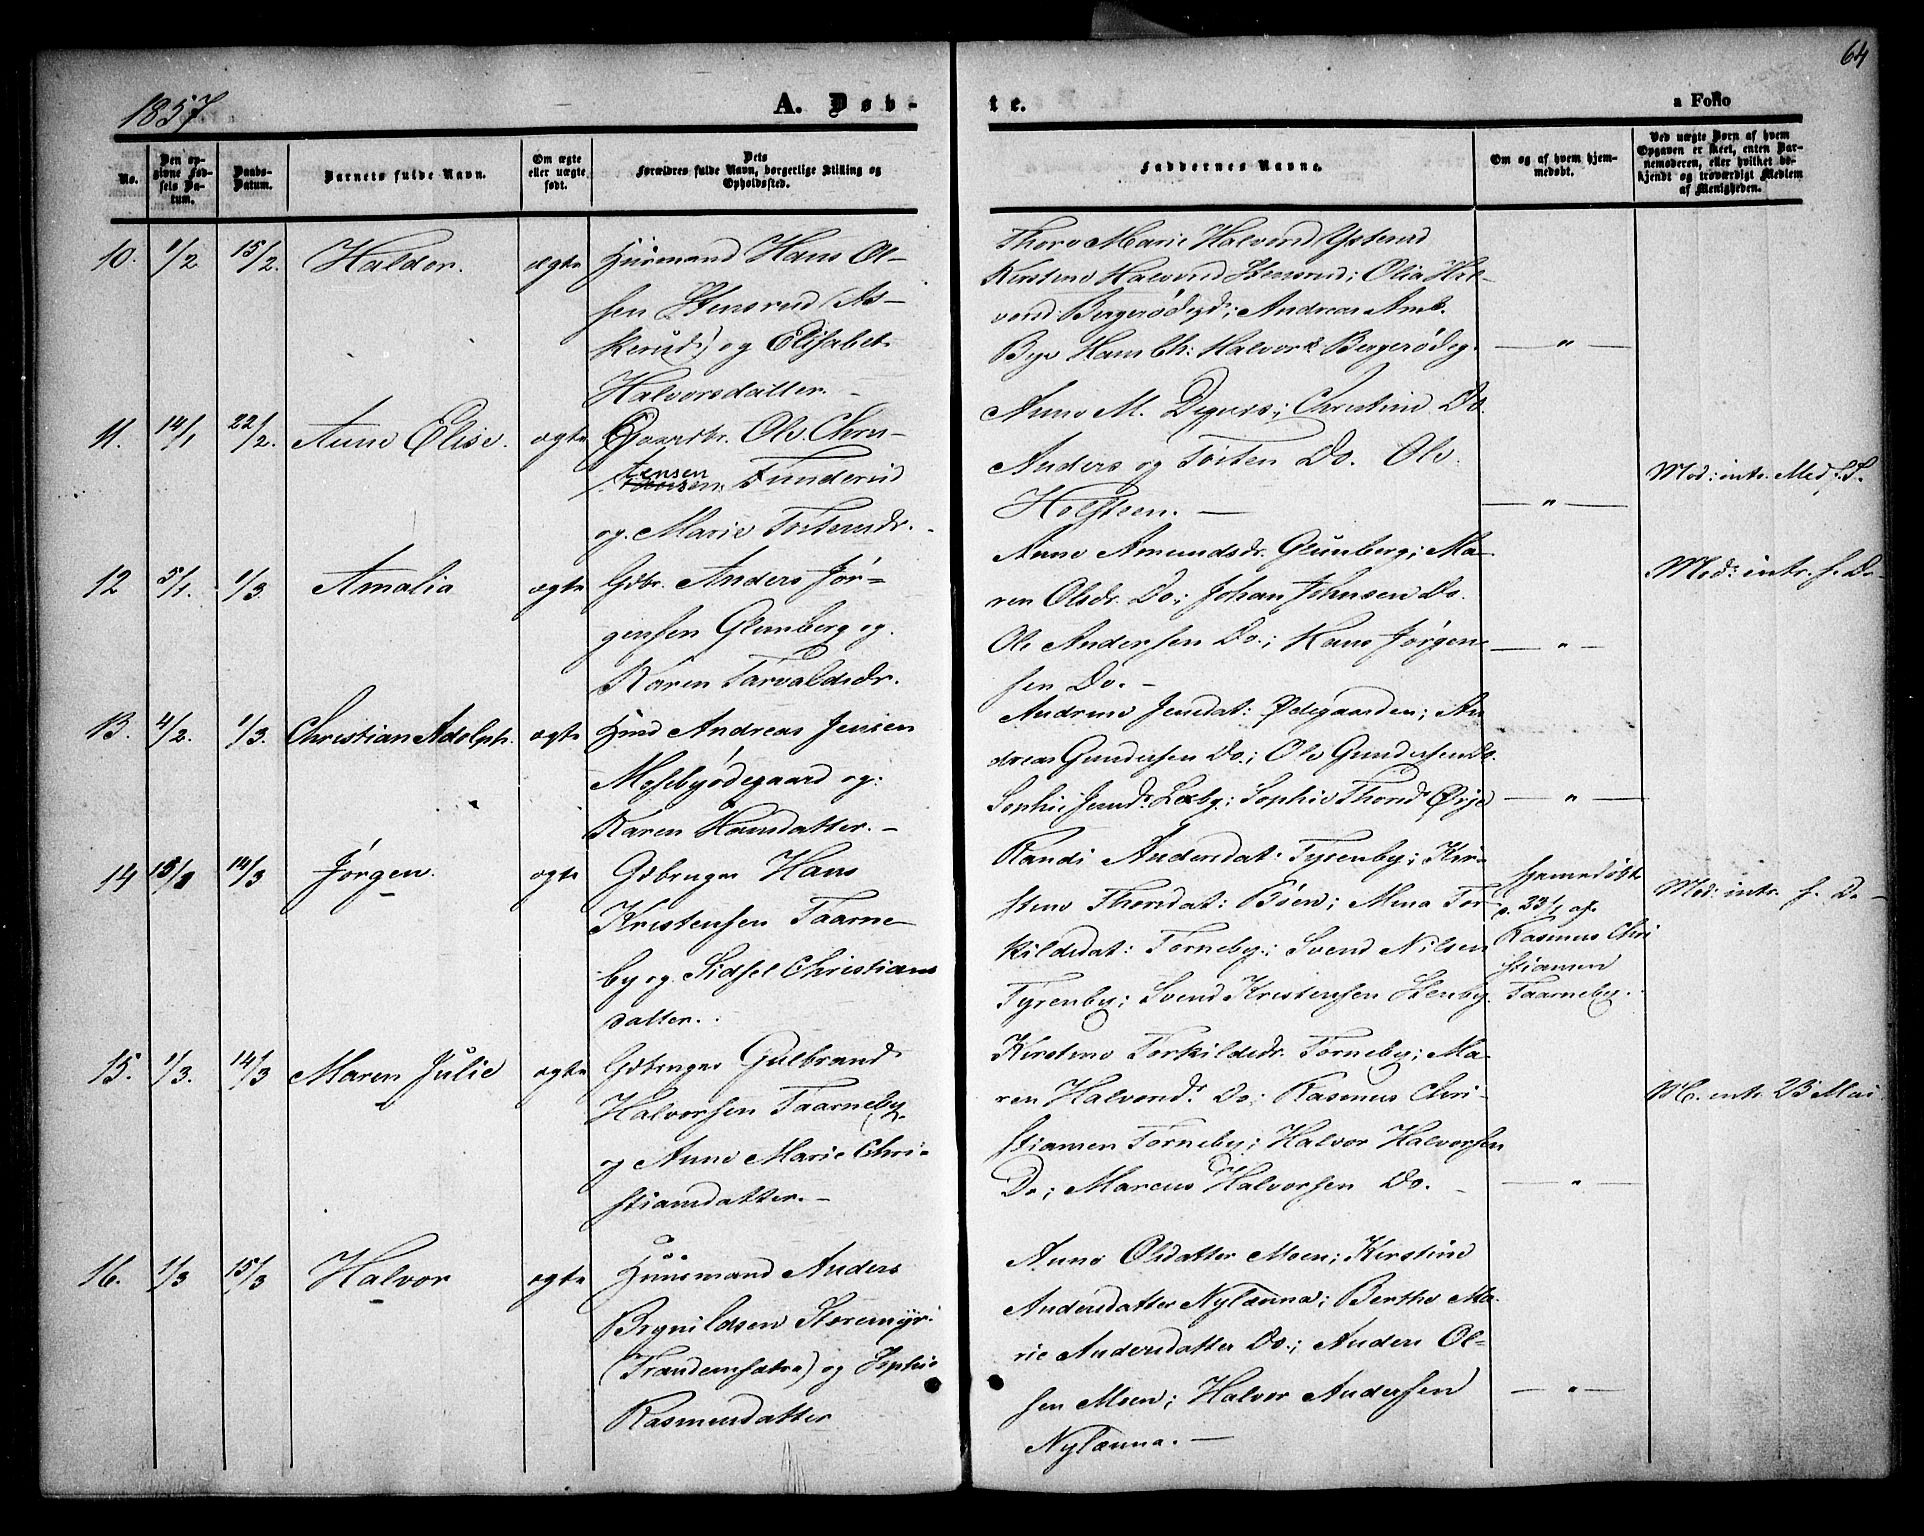 64
1857
A. Døb-
te.
a Folio
No.
Den op-
givne Fød-
sels Da-
tum.
Daabs-
Datum.
Barnets fulde Navn.
Om ægte
eller uægte
født.
Dets
Forældres fulde Navn, borgerlige Stilling og
Opholdssted.
Faddernes Navne.
Om og af hvem hjem-
medøbt.
Ved uægte Børn af hvem
Opgaven er skeet, enten Bar-
nemoderen, eller hvilket be-
kjendt og troværdigt Medlem
af Menigheden.
10. 1/2 15/2. Haldor. ægte Huusmand Hans Ol-
sen Stensrud (As-
kerud) og Elisabet
Halvorsdatter. -
Halvorsd Ysterud
Kirstine Halvorsd Stensrud; Olia Hal-
vorsd: Bergerødegd; Andreas Amb.
Bye Hans Ch: Halvors Bergerødeg. — " —
11. 14/1 22/2. Anne Elise. ægte Gaardbr. Ole Chri-
stensen Funderud
og Marie Tostensdr. -
Anne M. Degnes; Christine Do.
Anders og Tosten Do. Ole
Holsteen. — — " —
Mod: intr. Med S. S.
12 5/1. 1/3. Amalia ægte Gdbr. Anders Jør-
gensen Glenberg og
Karen Tarvaldsdr.
Anne Amundsdr. Glenberg; Ma-
ren Olsdr. Do.; Johan Johnsen Do.
Ole Andersen Do.; Hans Jørgen-
sen Do. - — " —
Mod: intr. f. Do-
13. 4/2. 1/3. Christian Adolph. ægte Husd Andreas Jensen
Mosebyødegaard og
Karen Hansdatter. -
Andrine Jensdat: Ødegaarden; An
dreas Gundersen Do.; Ole Gundersen Do.
Sophie Jensd: Lexby; Sophie Thorsd: Ørje — " —
14 14/3 Jørgen. ægte Gdbruger Hans
Kristensen Taarne-
by og Sidsel Christians
datter.
Randi Andersdat: Tyrenby; Kir-
stine Thorsdat: Bøen; Mina Tor
kildsdat: Torneby; Svend Nilsen
Tyrenby; Svend Kristensen Stenby.
hjemedøbt
d. 23/1 af
Rasmus Chri
stiansen
Taarneby.
Mod: intr. f. Do-
15. 1/3. 14/3 Maren Julie ægte Gdbruger Gulbrand
Halvorsen Taarneby
og Anne Marie Chri-
stiansdatter. -
Kirstine Torkildsdr. Torneby; Ma-
ren Halvorsd: Do; Rasmus Chri-
stiansen Torneby; Halvor Halvorsen
Do; Marcus Halvorsen Do. - — " —
M. intr. 23 Mai
16. 1/3 15/3 Halvor ægte Huusmand Anders
Brynildsen Storemyr
(Trandemsatre) og Sophie
Rasmusdatter
Anne Olsdatter Moen; Kirstine
Andersdatter Nylænna; Berthe Ma-
rie Andersdatter Do.; Anders Ol-
sen Moen; Halvor Andersen
Nylænna. — — " —